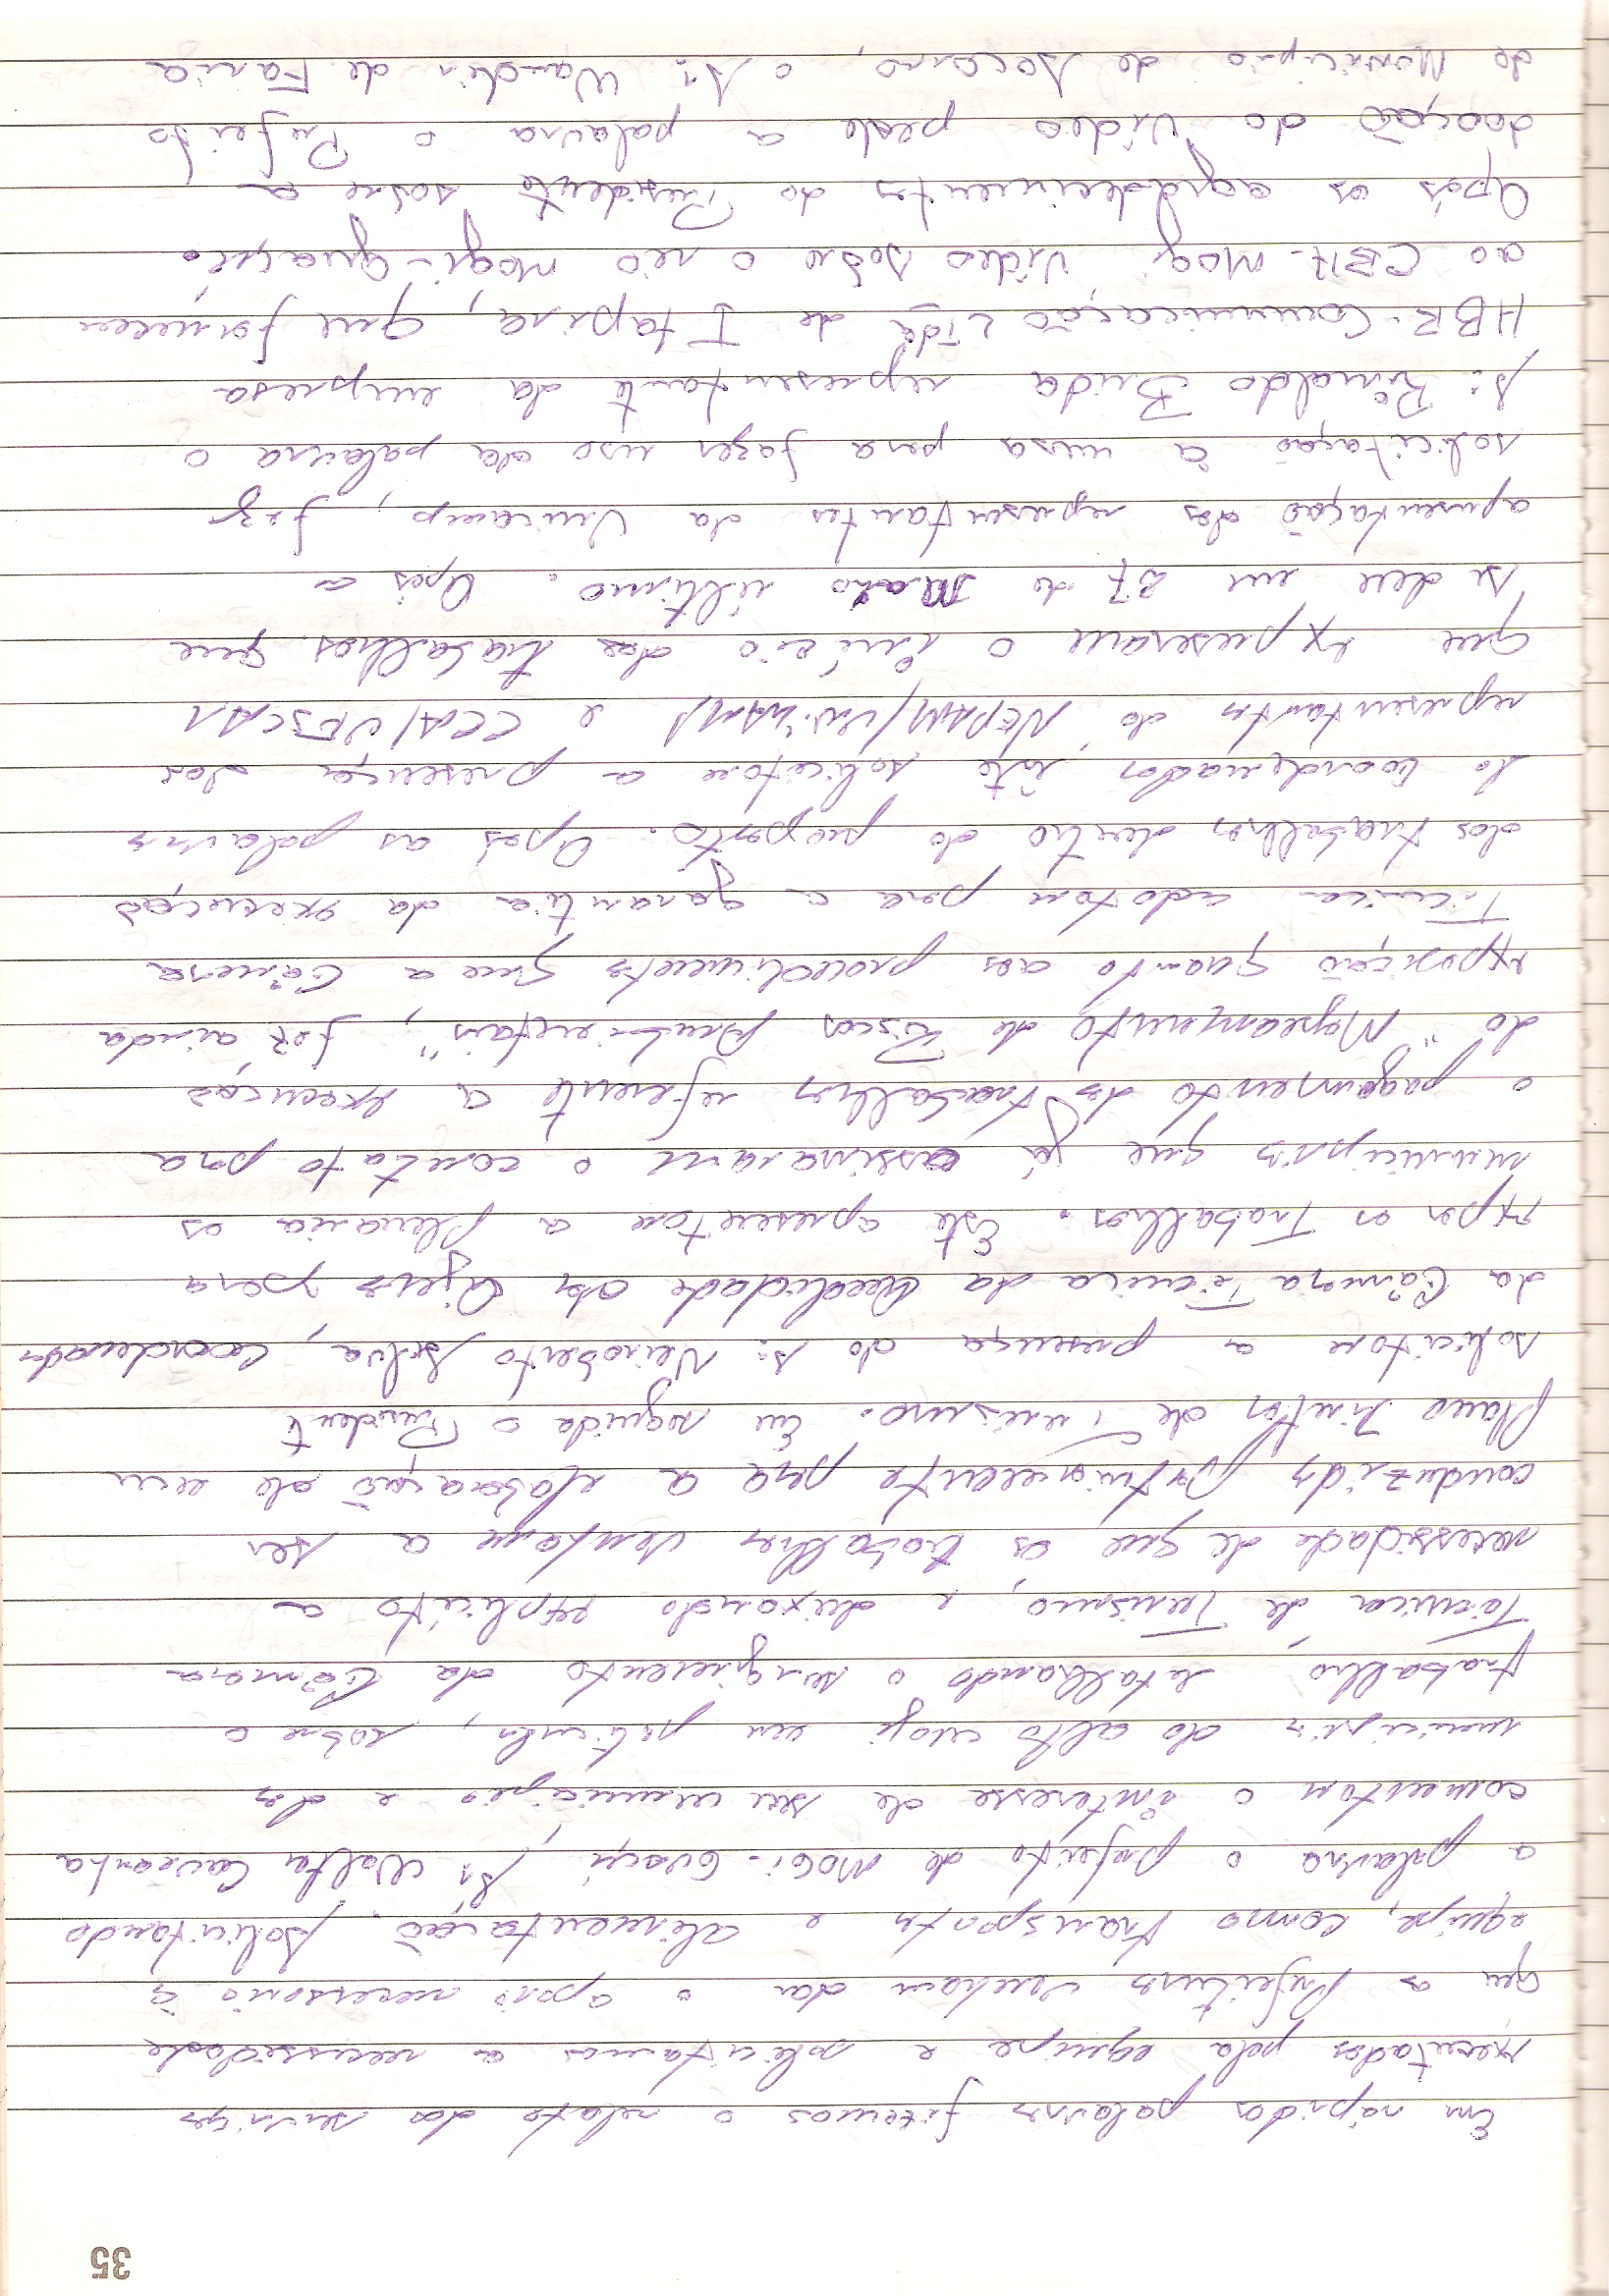 35
Em rápidas palavras fizemos o relato dos serviços
executados pela equipe e solicitamos a necessidade
que as Prefeituras venham dar o apoio necessario à
equipe, como transportes e alimentação. Solicitando
a palavra o prefeito de Mogi-Guaçú, Sr Walter Caveanha
comentou o interesse de seu município e dos
municipios do alto mogi em particular, sobre o
trabalho detalhando o surgimento da Câmara
Técnica de Turismo, e deixando explícito a
necessidade de que os trabalhos venham a ser
conduzidos para a elaboração de um
Plano Diretor de Turismo. Em seguida o Presidente
solicitou a presença do Sr. Neiroberto Silva, Coordenador
da Câmara Técnica da Qualidade das Águas para
expor os Trabalhos. Este apresentou a plenaria os
municipios que já assinaram o contato pra
o pagamento dos trabalhos referente a execução
do "Mapeamento de Riscos Ambientais", fez ainda
exposição quanto aos procedimentos que a Câmara
Técnica adotou para a garantia da execução
dos trabalhos dentro do proposto. Apos as palavras
do Coordenador este solicitou a presença dos
representantes do NEPAM/UNICAMP e CCA/UFSCAR
que expuseram o início dos trabalhos que
se deu em 27 de Maio último. Após a
apresentação dos representantes da Unicamp, fez
solicitação à mesa para fazer uso da palavra o
Sr. Rinaldo Brida representante da empresa
HBR-Comunicação Ltda de Itapira, que forneceu
ao CBH-Mogi video sobre o rio Mogi-Guaçú.
Após os agradecimentos do Presidente sobre a
doação do Video pede a palavra o Prefeito
do Município de Socorro, o Sr. Wandir de Faria